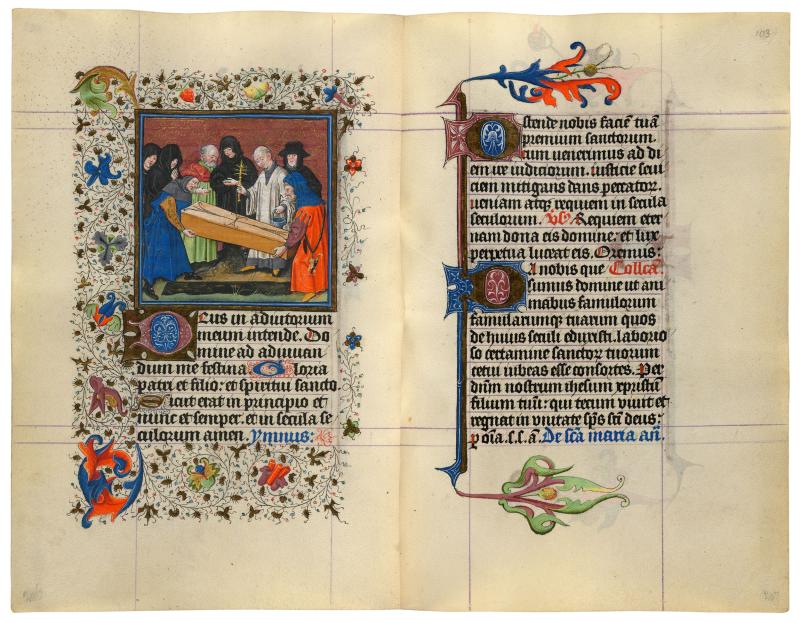 Deus in adiutorium
meum intende. Do
mine ad adiuuan
dum me festina Gloria
patri et filio: et spiritui sancto.
Sicut erat in principio et
nunc et semper. et in secula se
culorum amen. Ymnus:
103
Ostende nobis faciē tuā
premium sanctorum.
cum uenerimus ad di
em ire iudiciorum. iusticie seui
ciem mitigans dans peccatoꝝ
ueniam atqꝫ requiem in secula
seculorum. Requiem eter
nam dona eis domine: et lux
perpetua luceat eis. Oremus:
Da nobis que Collcā:
sumus domine ut ani
mabus famulorum
famularumqꝫ tuarum quos
de huius seculi eduxisti. laborio
so certamine sanctoꝝ tuorum
cetui iubeas esse consortes. Per
dn̄m nostrum ihesum xpristū
filium tuū: qui tecum viuit et
regnat in vnitate sp̄s sc̄ti deus:
ꝑ oīa. s. s. ā. De sc̄ā maria an̄.